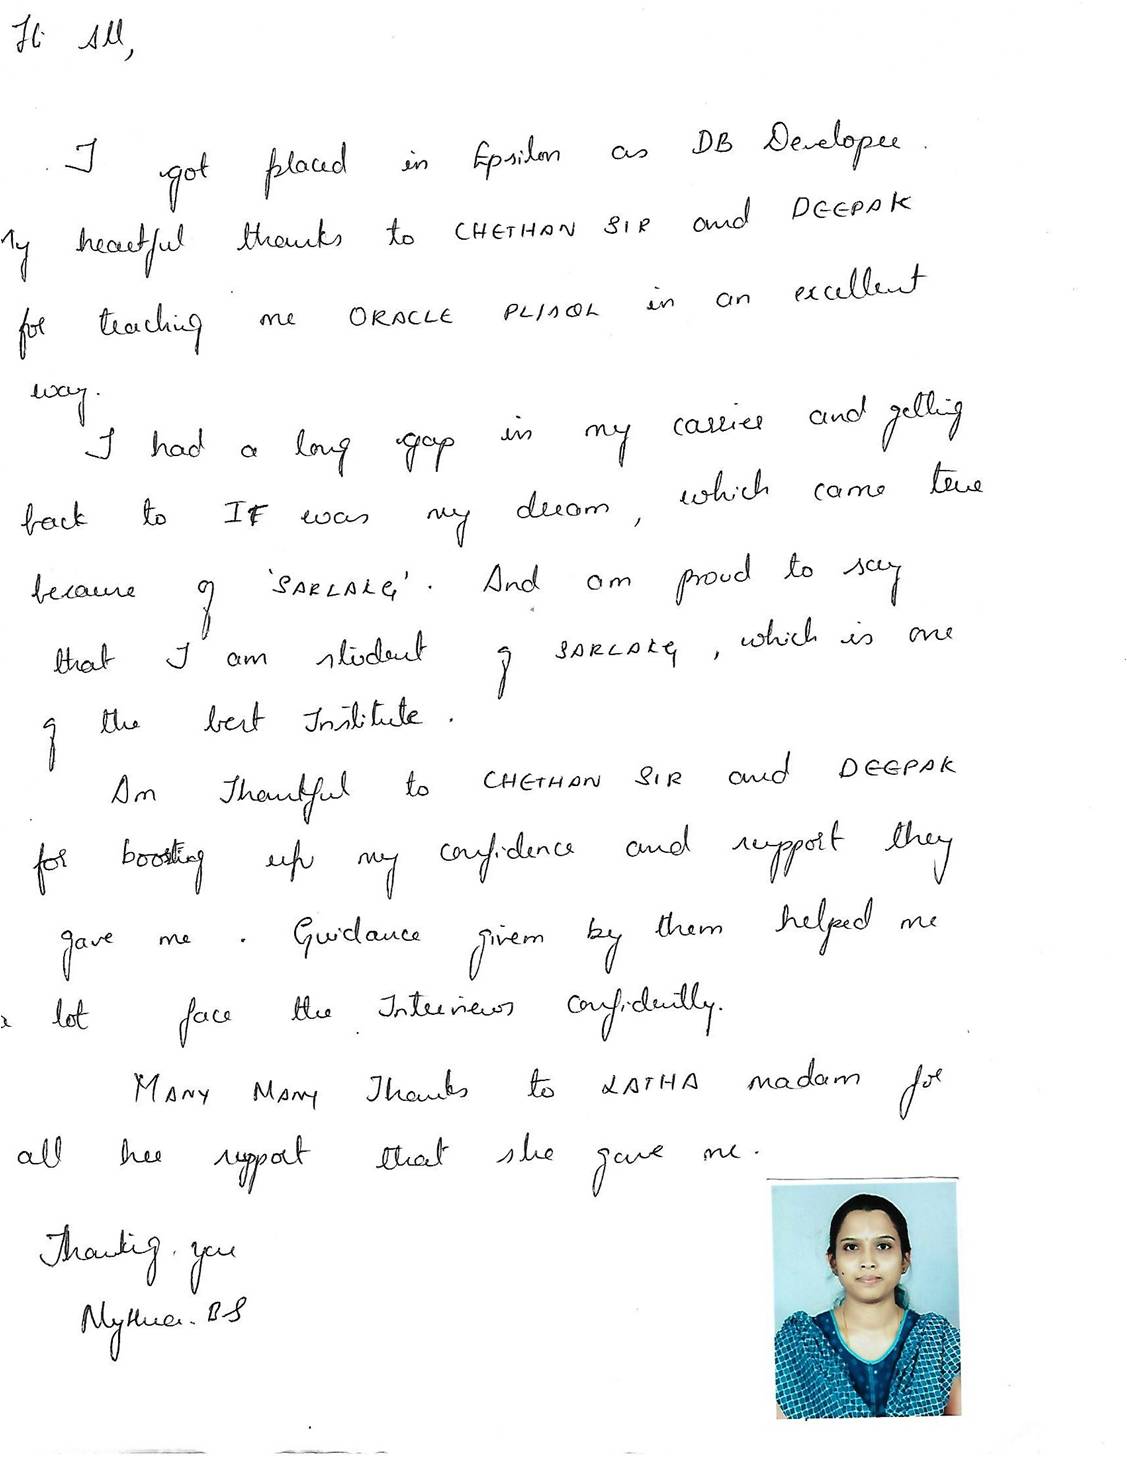 Hi All,
I got placed in Epsilon as DB Developer.
My heartful thanks to CHETHAN SIR and DEEPAK
for teaching me ORACLE PL/SQL in an excellent
way.
I had a long gap in my carrier and getting
back to IT was my dream, which came true
because of 'SARLAKG'. And am proud to say
that I am student of SARLAKG, which is one
of the best Institute.
Am Thankful to CHETHAN SIR and DEEPAK
for boosting up my confidence and support they
gave me. Guidance given by them helped me
a lot face the Interviews confidently.
MANY MANY Thanks to LATHA madam for
all her support that she gave me.
Thanking you
BS